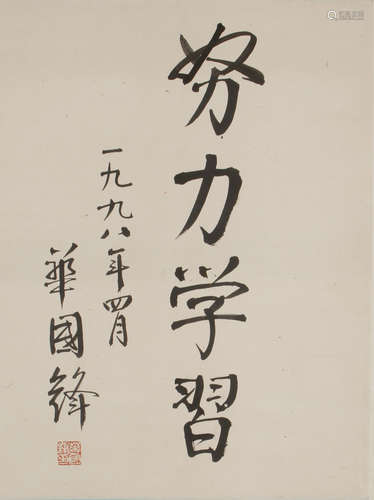 努力学習
一九九八年四月
華國鋒